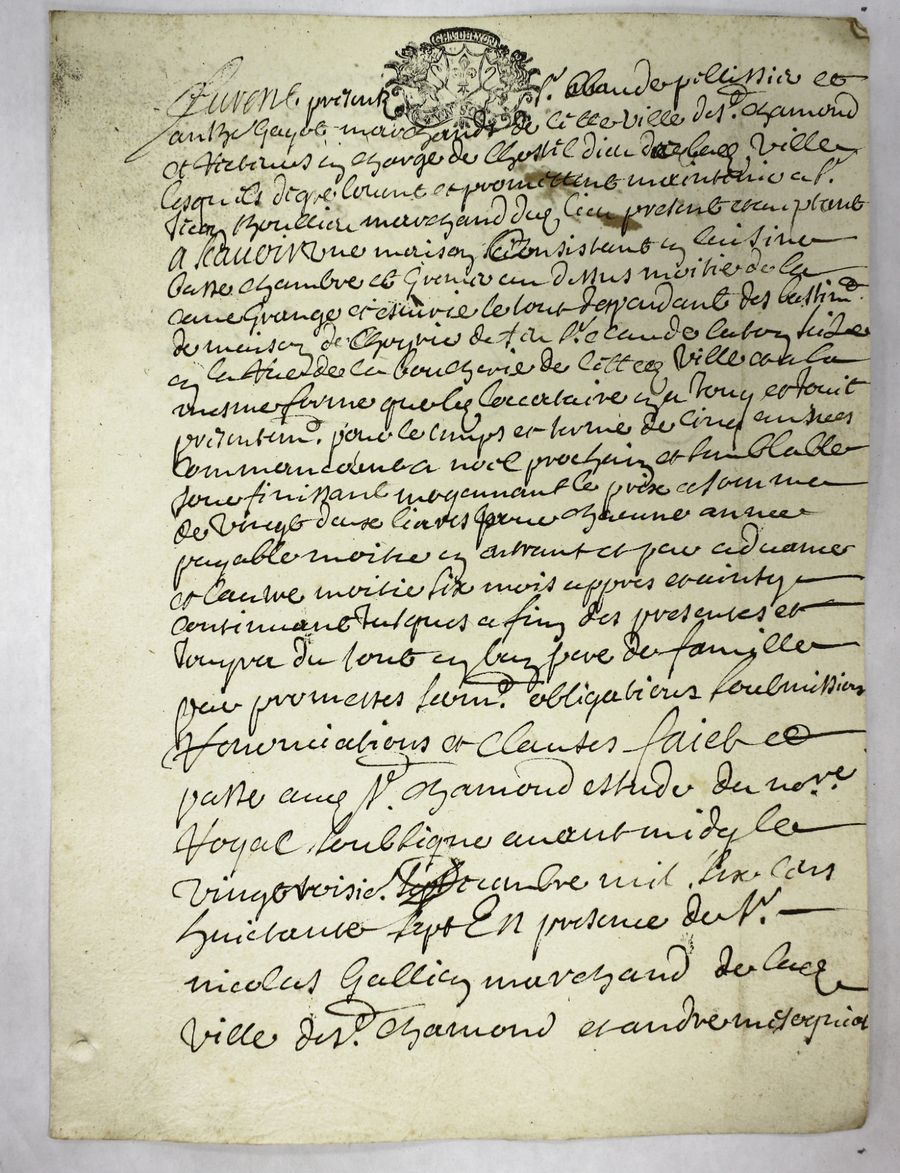 GEN. DE LYON
Furent presents Sr. Claude pellissier et
Gayot marchands de cette ville de st. chamond
et Recteurs en charge de lhostel dieu de lad. ville
lesquels de gré louent et promettent maintenir a Sr.
marchand dud. lieu present et acceptant
a scauoir une maison Consistant en cuisine
basse chambre et Grenier au dessus moitié de la
caue Grange et escurie le tout deppendant des bastimt.
de maison de de feu Sr. claude size
en la Rue de la boucherie de cette ville et a la
mesme forme que le locataire en a Jouy et Jouit
presentemt. pour le temps et terme de cinq années
commancant a noel prochain et semblable
Jour finissant moyennant le prix et somme
de Vingt deux liures pour chacune année
payable moitié en entrant et par aduance
et lautre moitié six mois appres et ainsy
continuant Jusques a fin des presentes et
Jouyra du tout en bon pere de famille
par promesses sermt. obligations soubmissions
Renonciations et clauses faict et
passé aud. St. chamond estude du nore.
Royal soubsigné auant midy le
vingt troisie. decembre mil six cens
huictante sept En presence de Sr.
nicolas Gallien marchand de lad.
ville de st. chamond et andre